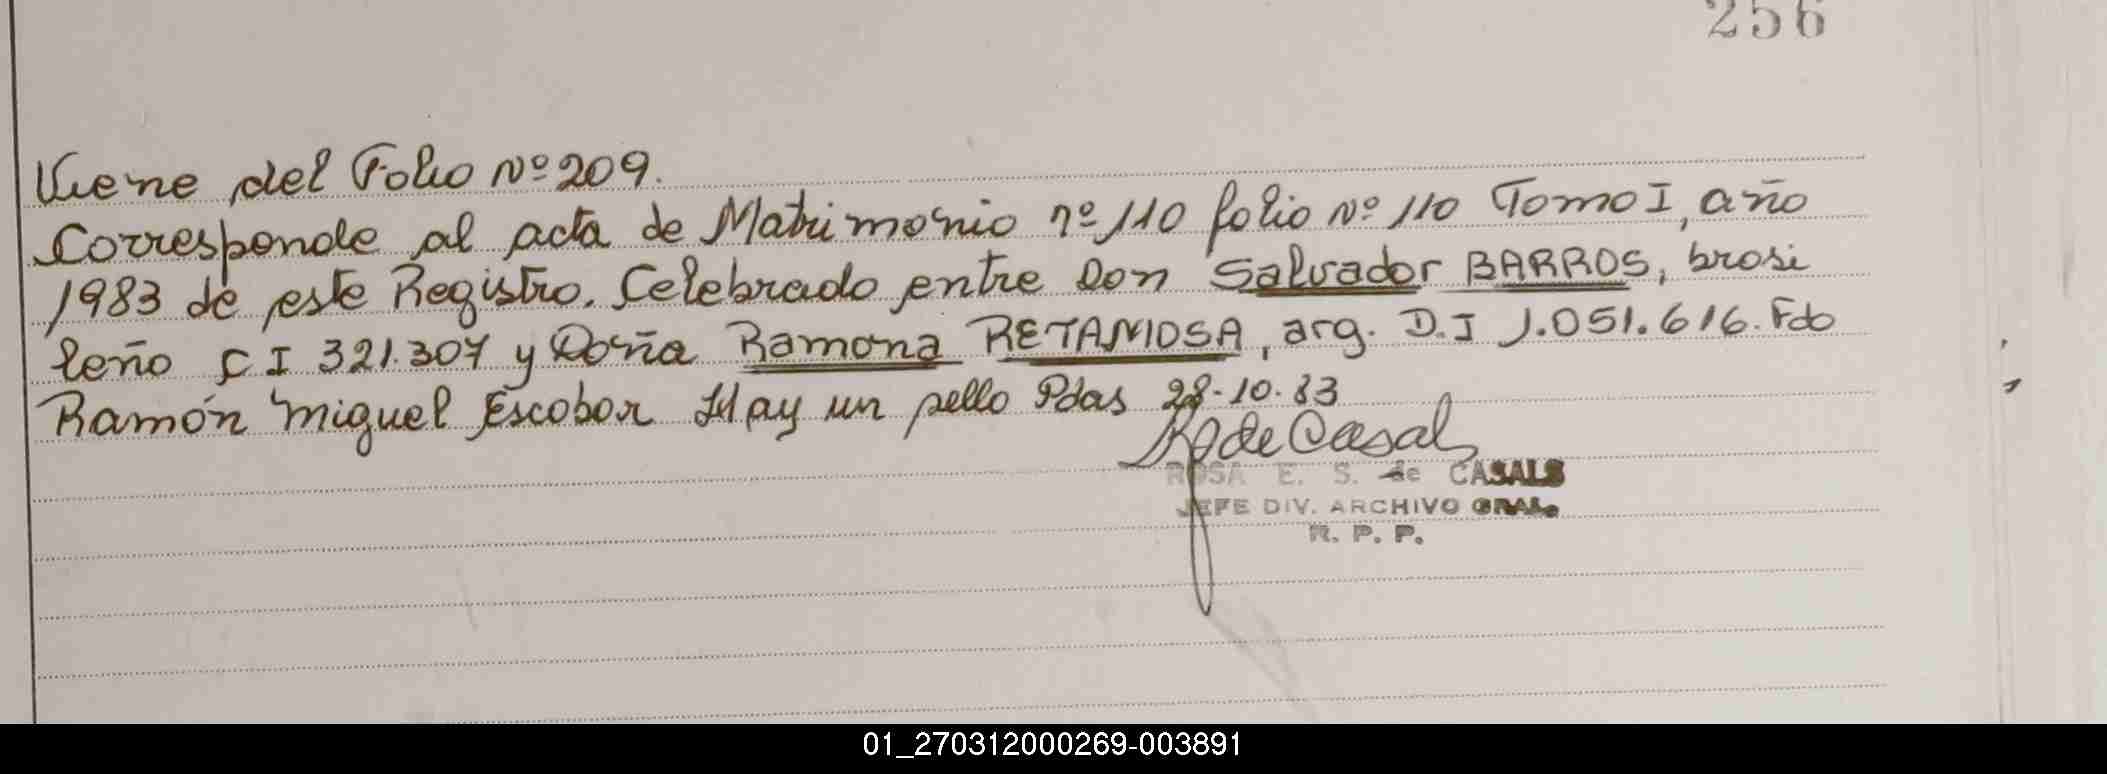 256
Viene del Folio Nº 209.
Corresponde al acta de Matrimonio nº 110 folio Nº 110 Tomo I, año
1983 de este Registro. Celebrado entre Don Salvador BARROS, brasi
leño C I 321.307 y Doña Ramona RETAMOSA, arg. D.I 1.051.616. Fdo
Ramón Miguel Escobar Hay un sello Pdas 28-10-83
de Casals
ROSA E. S. de CASALS
JEFE DIV. ARCHIVO GRAL.
R. P. P.
01_270312000269-003891